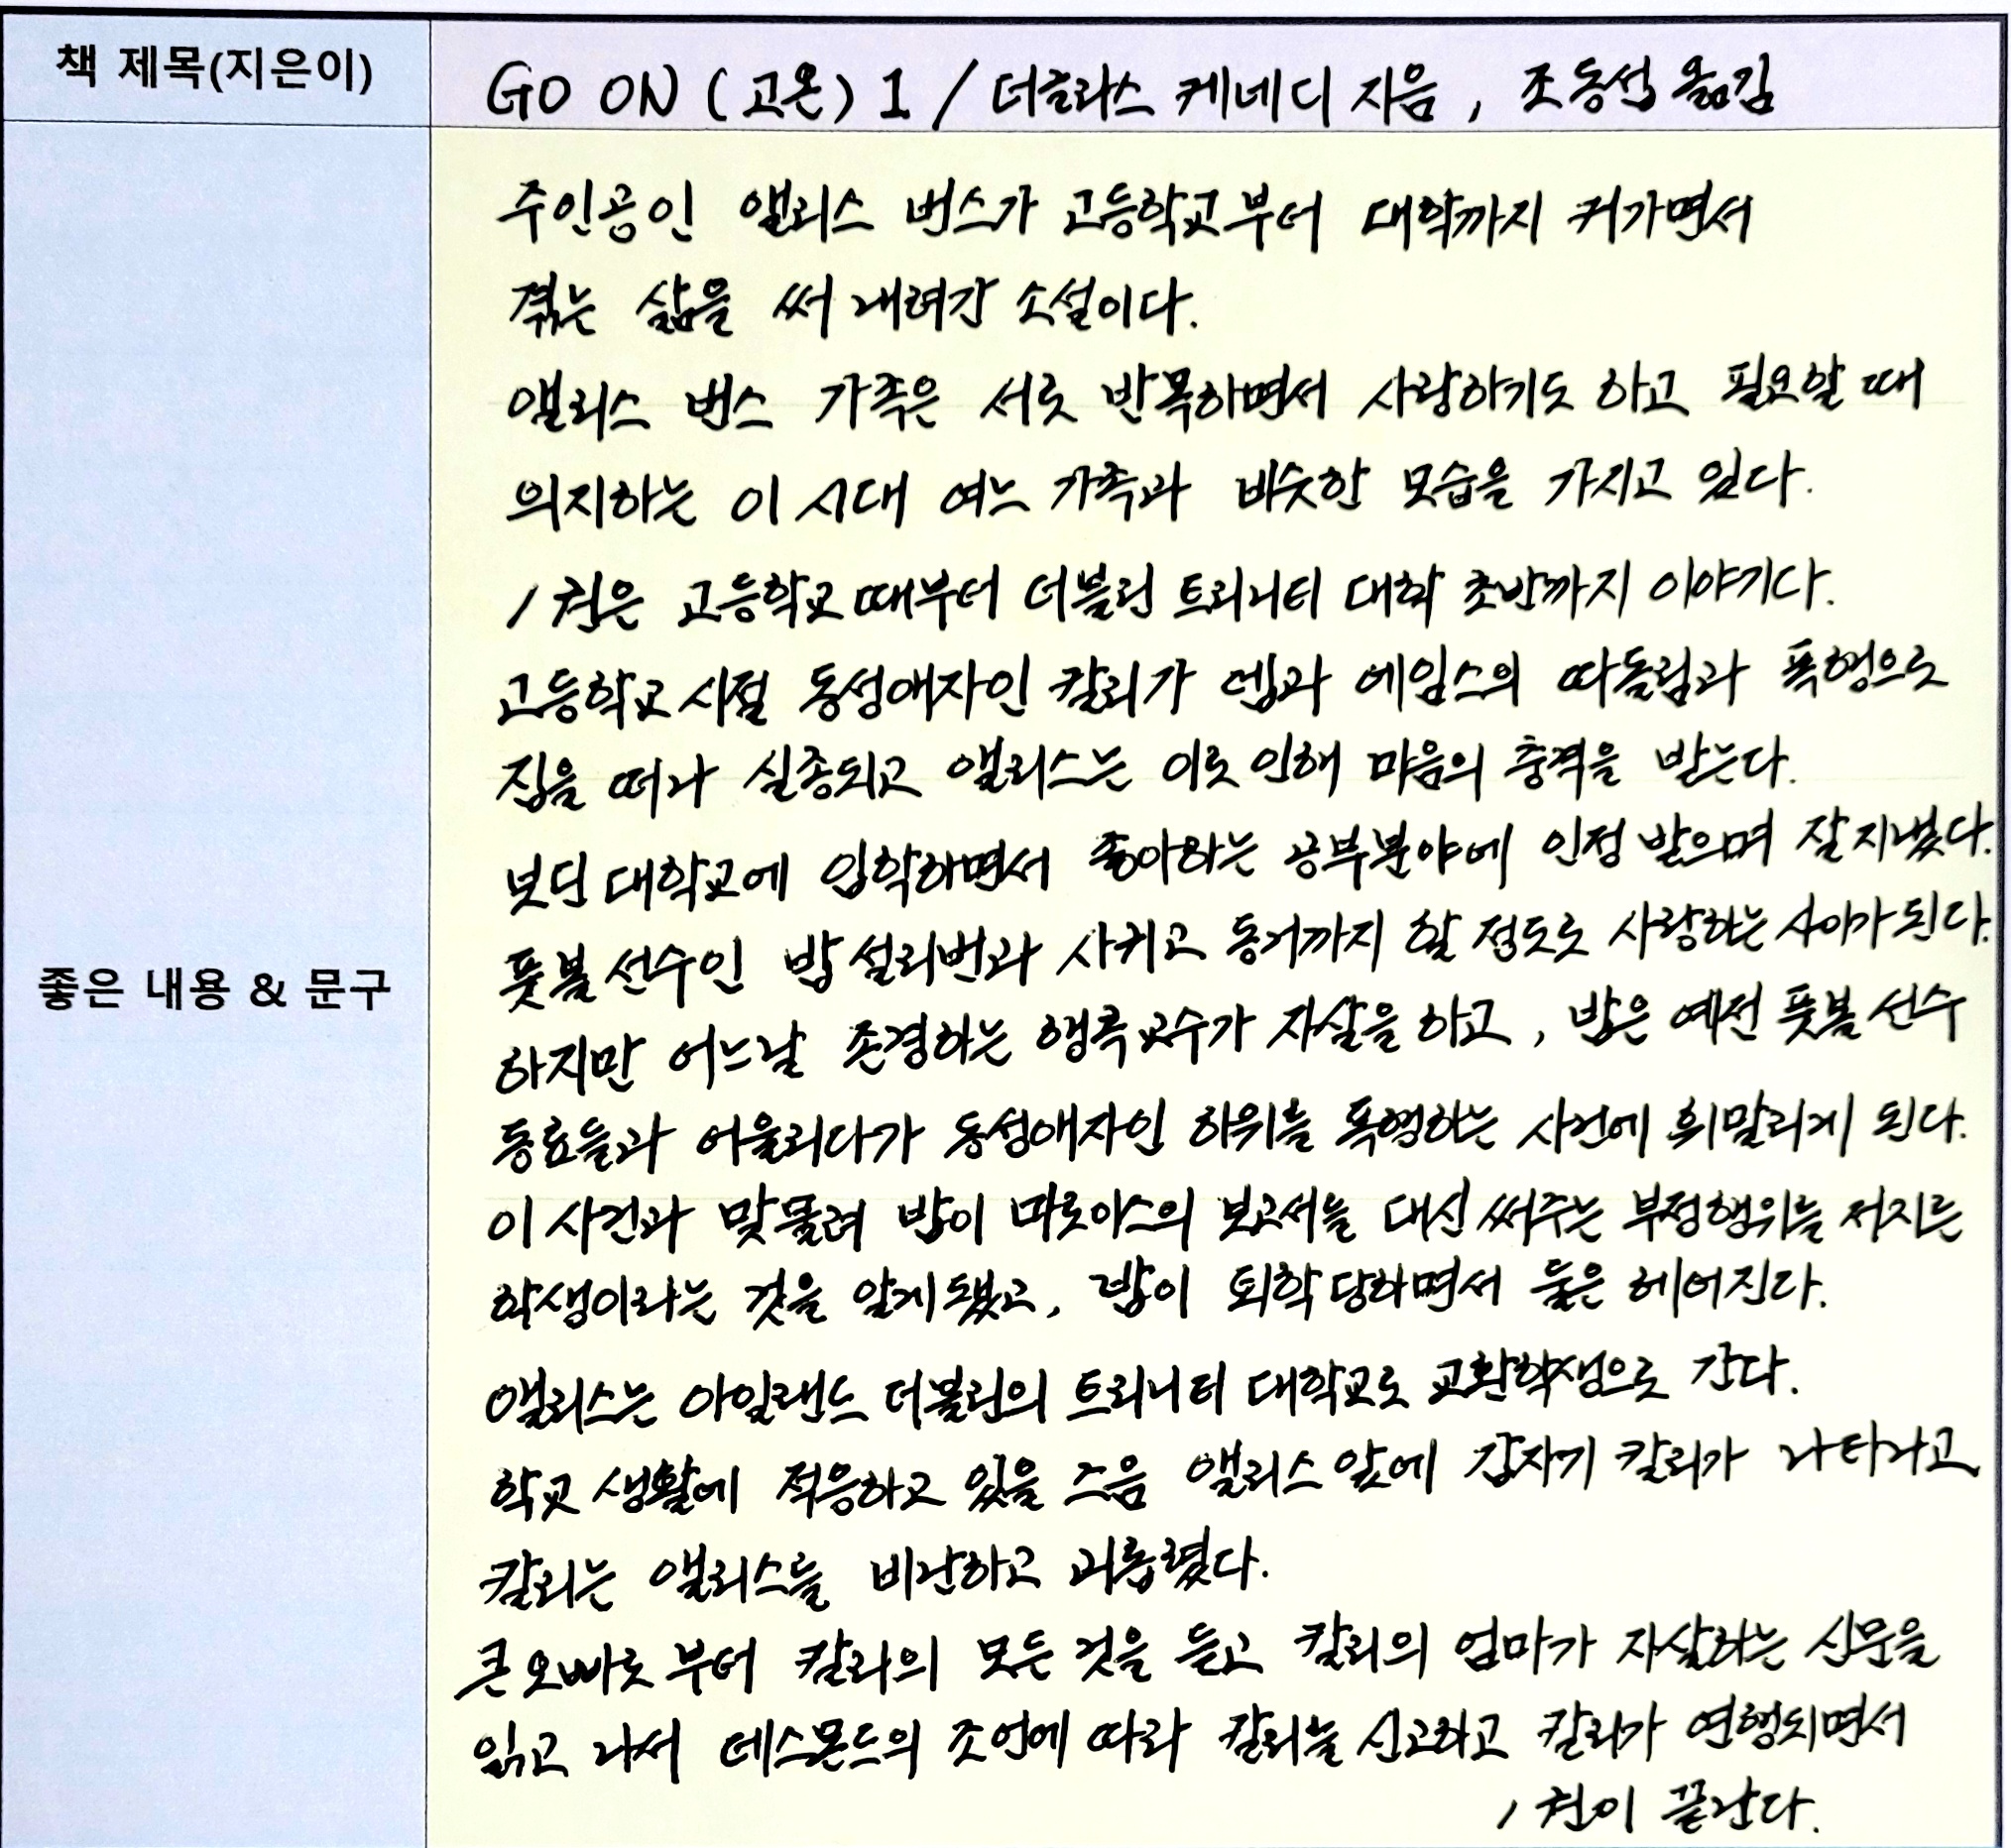 책 제목(지은이)
GO ON (고온) 1 / 더글라스 케네디 지음, 조동섭 옮김
주인공인 앨리스 번스가 고등학교부터 대학까지 커가면서
겪는 삶을 써 내려간 소설이다.
앨리스 번스 가족은 서로 반목하면서 사랑하기도 하고 필요할 때
의지하는 이 시대 여느 가족과 비슷한 모습을 가지고 있다.
1권은 고등학교 때부터 더블린 트리니티 대학 초반까지 이야기다.
고등학교 시절 동성애자인 칼리가 뎁과 에임스의 따돌림과 폭행으로
집을 떠나 실종되고 앨리스는 이로 인해 마음의 충격을 받는다.
보딘 대학교에 입학하면서 좋아하는 공부분야에 인정 받으며 잘 지냈다.
풋볼 선수인 밥 설리번과 사귀고 동거까지 할 정도로 사랑하는 사이가 된다.
좋은 내용 & 문구
하지만 어느날 존경하는 행콕 교수가 자살을 하고, 밥은 예전 풋볼 선수
동료들과 어울리다가 동성애자인 하위를 폭행하는 사건에 휘말리게 된다.
이 사건과 맞물려 밥이 마로이스의 보고서를 대신 써주는 부정행위를 저지른
학생이라는 것을 알게 됐고, 밥이 퇴학 당하면서 둘은 헤어진다.
앨리스는 아일랜드 더블린의 트리니티 대학교로 교환학생으로 간다.
학교 생활에 적응하고 있을 즈음 앨리스 앞에 갑자기 칼리가 나타나고
칼리는 앨리스를 비난하고 괴롭혔다.
큰 오빠로 부터 칼리의 모든 것을 듣고 칼리의 엄마가 자살하는 신문을
읽고 나서 데스몬드의 조언에 따라 칼리를 신고하고 칼리가 연행되면서
1권이 끝난다.